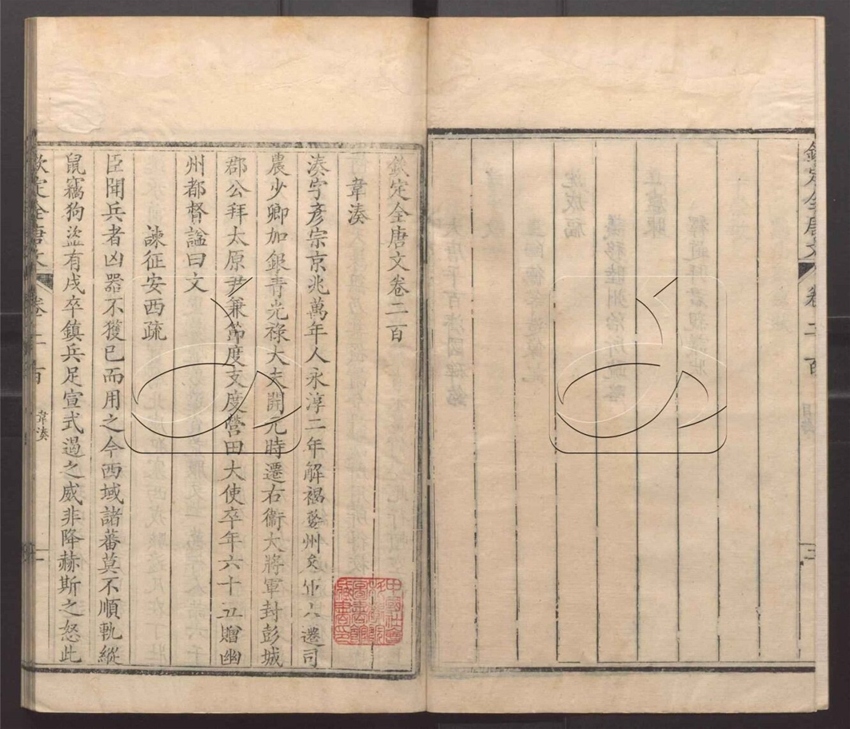 欽定全唐文
卷二百
三
欽定全唐文卷二百
韋湊
湊字彥宗京兆萬年人永淳二年解褐婺州參軍遷司
農少卿加銀青光祿大夫開元時遷右衛大將軍封彭城
郡公拜太原尹兼節度支度營田大使卒年六十五贈幽
州都督諡曰文
諫征安西疏
臣聞兵者凶器不獲已而用之今西域諸蕃莫不順軌縱
鼠竊狗盜有戍卒鎮兵足宣式遏之威非降赫斯之怒此
欽定全唐文
卷二百
韋湊
一